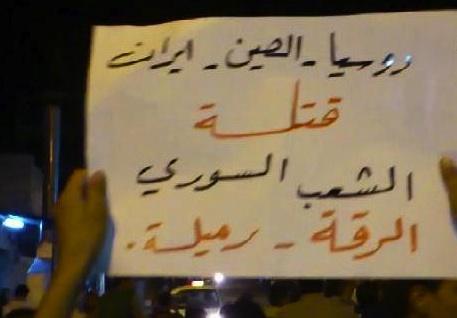 روسيا - الصين - ايران
قتلة
الشعب السوري
الرقة - رميلة .